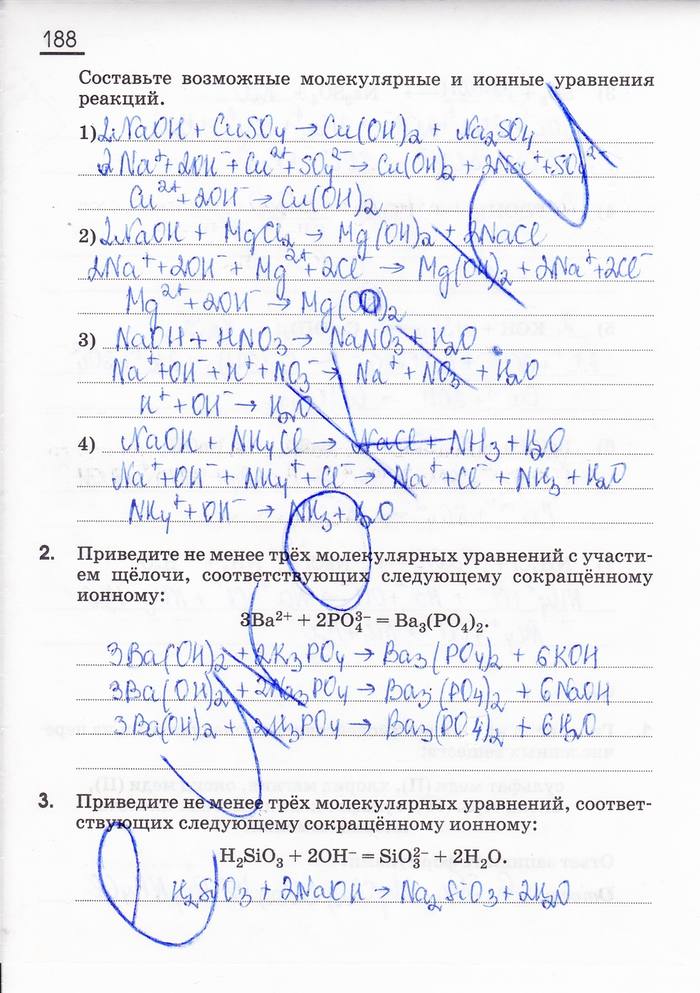 188
Составьте возможные молекулярные и ионные уравнения
реакций.
1) 2NaOH + CuSO4 → Cu(OH)2 + Na2SO4
2Na⁺ + 2OH⁻ + Cu²⁺ + SO4²⁻ → Cu(OH)2 + 2Na⁺ + SO4²⁻
Cu²⁺ + 2OH⁻ → Cu(OH)2
2) 2NaOH + MgCl2 → Mg(OH)2 + 2NaCl
2Na⁺ + 2OH⁻ + Mg²⁺ + 2Cl⁻ → Mg(OH)2 + 2Na⁺ + 2Cl⁻
Mg²⁺ + 2OH⁻ → Mg(OH)2
3) NaOH + HNO3 → NaNO3 + H2O
Na⁺ + OH⁻ + H⁺ + NO3⁻ → Na⁺ + NO3⁻ + H2O
H⁺ + OH⁻ → H2O
4) NaOH + NH4Cl → NaCl + NH3 + H2O
Na⁺ + OH⁻ + NH4⁺ + Cl⁻ → Na⁺ + Cl⁻ + NH3 + H2O
NH4⁺ + OH⁻ → NH3 + H2O
2. Приведите не менее трёх молекулярных уравнений с участи-
ем щёлочи, соответствующих следующему сокращённому
ионному:
3Ba²⁺ + 2PO4³⁻ = Ba3(PO4)2.
3Ba(OH)2 + 2K3PO4 → Ba3(PO4)2 + 6KOH
3Ba(OH)2 + 2Na3PO4 → Ba3(PO4)2 + 6NaOH
3Ba(OH)2 + 2H3PO4 → Ba3(PO4)2 + 6H2O
3. Приведите не менее трёх молекулярных уравнений, соответ-
ствующих следующему сокращённому ионному:
H2SiO3 + 2OH⁻ = SiO3²⁻ + 2H2O.
H2SiO3 + 2NaOH → Na2SiO3 + 2H2O